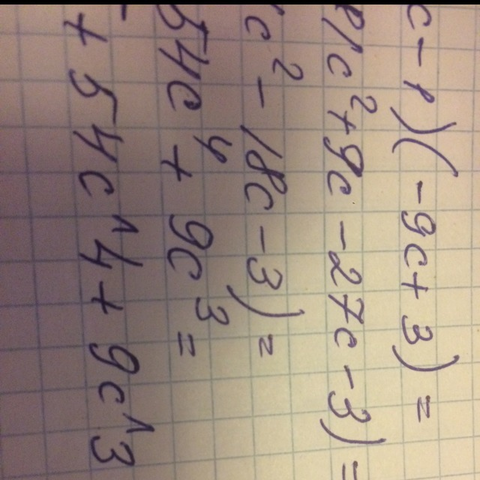 c - 1)(-9c + 3) =
1c² + 9c - 27c - 3) =
c² - 18c - 3) =
54c⁴ + 9c³ =
+ 54c^4 + 9c^3